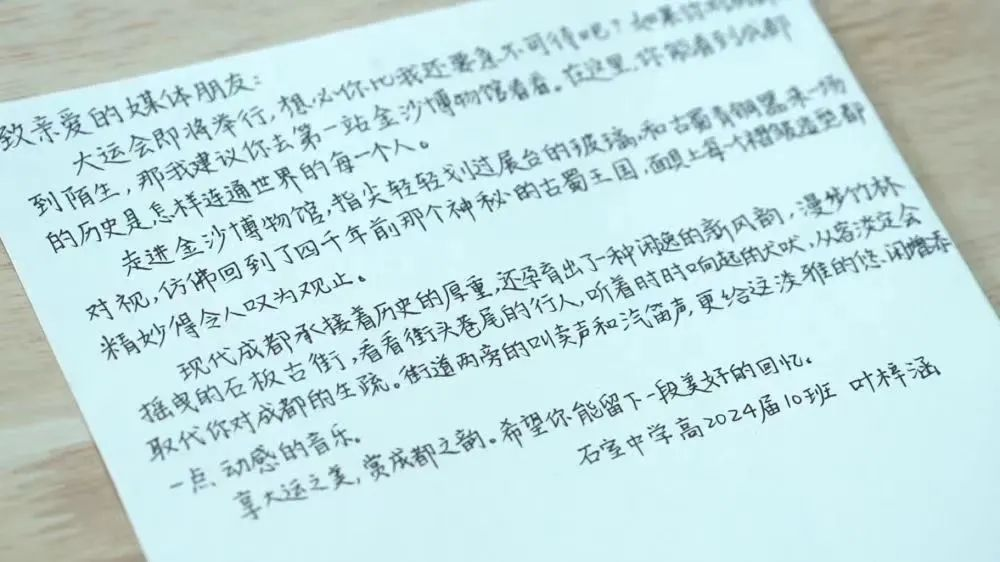 致亲爱的媒体朋友:
大运会即将举行,想必你比我还要急不可待吧?如果你对成都
到陌生,那我建议你去第一站金沙博物馆看看。在这里,你能看到成都
的历史是怎样连通世界的每一个人。
走进金沙博物馆,指尖轻轻划过展台的玻璃,和古蜀青铜器来一场
对视,仿佛回到了四千年前那个神秘的古蜀王国,面具上每一个褶皱造型都
精妙得令人叹为观止。
现代成都承接着历史的厚重,还孕育出了一种闲逸的新风韵,漫步竹林
摇曳的石板古街,看看街头巷尾的行人,听着时时响起的犬吠,从容淡定会
取代你对成都的生疏。街道两旁的叫卖声和汽笛声,更给这淡雅的悠闲增添
一点动感的音乐。
享大运之美,赏成都之韵。希望你能留下一段美好的回忆。
石室中学高2024届10班 叶梓涵